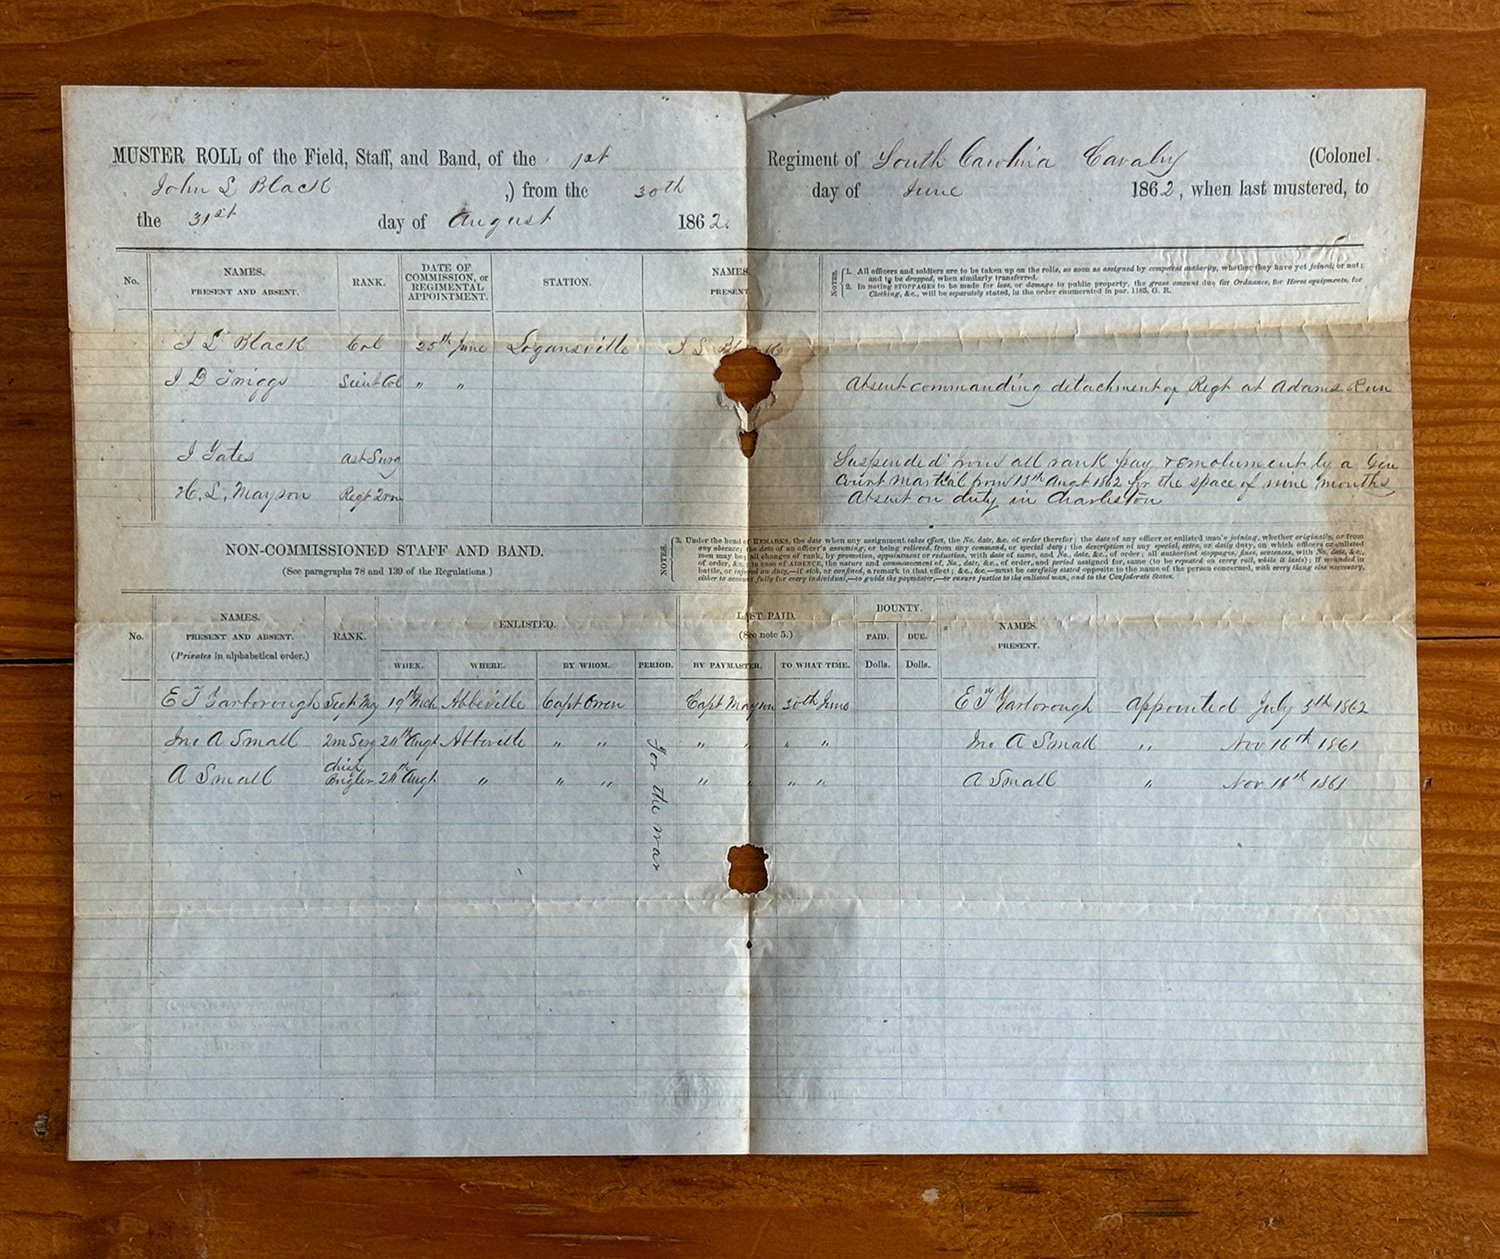 MUSTER ROLL of the Field, Staff, and Band, of the 1st Regiment of South Carolina Cavalry (Colonel
John L Black ,) from the 30th day of June 1862, when last mustered, to
the 31st day of August 1862.
No. NAMES. PRESENT AND ABSENT. RANK. DATE OF COMMISSION, OR REGIMENTAL APPOINTMENT. STATION. NAMES PRESENT
NOTES. 1. All officers and soldiers are to be taken up on the rolls, so soon as assigned by competent authority, whether they have yet joined, or not;
and to be dropped, when similarly transferred.
2. In noting STOPPAGES to be made for loss, or damage to public property, the gross amount due for Ordnance, for Horse equipments, for
Clothing, &c., will be separately stated, in the order enumerated in par. 1185, G. R.
J L Black Col 25th June Logansville J L
J D Twiggs Lieut Col " " Absent commanding detachment of Regt at Adams Run
J Yates ast Surg Suspended from all rank pay & emolument by a Gen
Court Martial from 13th Augt 1862 for the space of nine months
H. L, Mayson Regt 2rm Absent on duty in Charleston
NON-COMMISSIONED STAFF AND BAND.
(See paragraphs 78 and 139 of the Regulations.)
NOTES. 3. Under the head of REMARKS, the date when any assignment takes effect, the No. date, &c. of order therefor; the date of any officer or enlisted man's joining, whether originally, or from
any absence; the date of an officer's assuming, or being relieved, from any command, or special duty; the description of any special, extra, or daily duty, on which officers or enlisted
men may be; all changes of rank, by promotion, appointment or reduction, with date of same, and No., date, &c., of order; all authorized stoppages, fines, sentences, with No., date, &c.,
of order, &c.; in case of ABSENCE, the nature and commencement of, No., date, &c., of order, and period assigned for, same (to be repeated on every roll, while it lasts); if wounded in
battle, or injured on duty,—if sick, or confined, a remark to that effect; &c., &c.,—must be carefully stated opposite to the name of the person concerned, with every thing else necessary,
either to account fully for every individual,—to guide the paymaster,—or ensure justice to the enlisted man, and to the Confederate States.
No. NAMES. PRESENT AND ABSENT. (Privates in alphabetical order.) RANK. ENLISTED. LAST PAID. (See note 5.) BOUNTY. NAMES. PRESENT.
WHEN. WHERE. BY WHOM. PERIOD. BY PAYMASTER. TO WHAT TIME. PAID. Dolls. DUE. Dolls.
E J Yarborough Sergt Maj 19th Mch Abbeville Capt Owen Capt Mayson 30th June E J Yarborough appointed July 5th 1862
Jno A Small 2m Serg 20th Augt Abbeville " " " " " " Jno A Small " Nov 16th 1861
A Small Chief Bugler 20th Augt " " " " " " " A Small " Nov 16th 1861
For the war